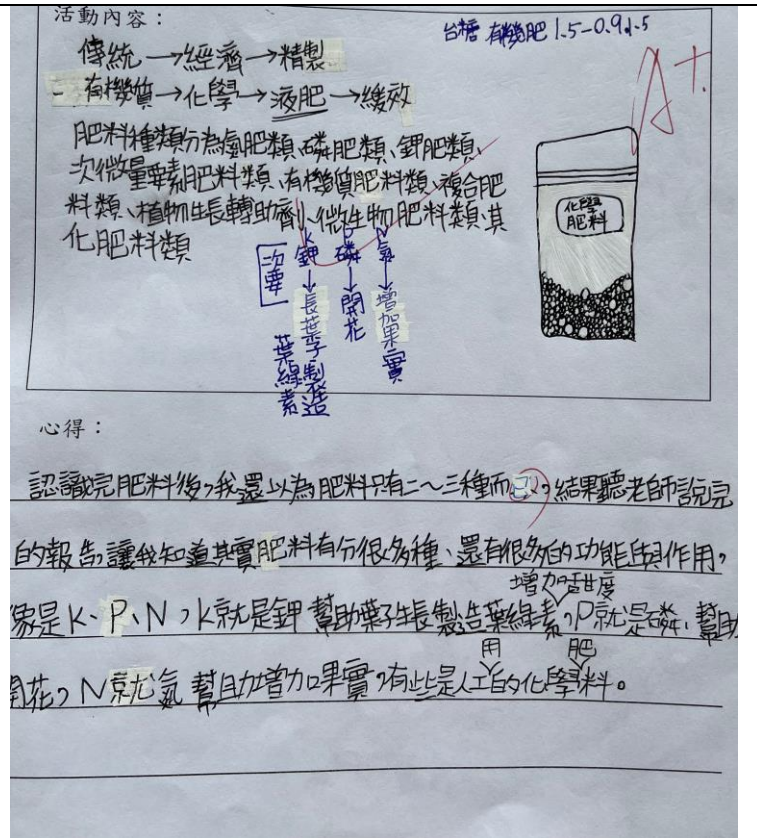 活動內容：
台糖 有機肥 1.5-0.9-1.5
傳統→經濟→精製
- 有機質→化學→液肥→緩效
A+
肥料種類分為氮肥類、磷肥類、鉀肥類、
次微量要素肥料類、有機質肥料類、複合肥
料類、植物生長輔助劑、微生物肥料類、其
化肥料類
化學
肥料
N氮→增加果實
P磷→開花
K鉀→長葉子製造
葉綠素
次要
心得：
認識完肥料後,我還以為肥料只有二~三種而已,結果聽老師說完
的報告,讓我知道其實肥料有分很多種、還有很多的功能與作用,
增加甜度
像是K、P、N,K就是鉀 幫助葉子生長製造葉綠素,P就是磷,幫助
用 肥
開花,N就氮 幫助增加果實,有些是人工的化學料。